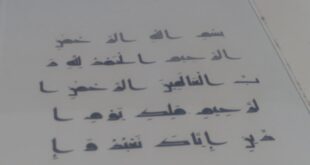 بسم الله الرحمن
الرحيم الحمد لله ر
ب العالمين الرحمن ا
لرحيم ملك يوم ا
لدين إياك نعبد و إ